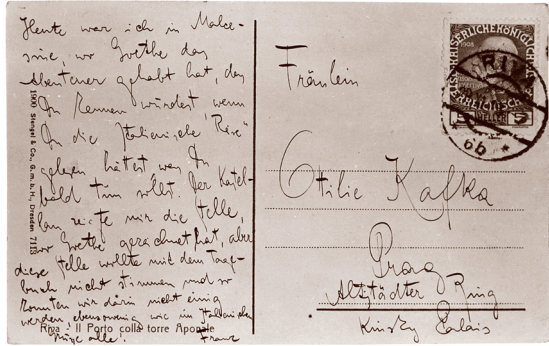 Heute war ich in Malce-
sine, wo Goethe das
Abenteuer gehabt hat, das
Du kennen würdest wenn
Du die Italienische "Reise"
gelesen hättest, was Du
bald tun sollst. Der Kastel-
lan zeigte mir die Stelle,
wo Goethe gezeichnet hat, aber
diese Stelle wollte mit dem Tage-
buch nicht stimmen und so
konnten wir darin nicht einig
werden, ebensowenig wie im Italienischen
Grüße alle! Franz
Riva - Il Porto colla torre Aponale
1900 Stengel & Co., G. m. b. H., Dresden
Fräulein
Ottilie Kafka
Prag
Altstädter Ring
Kinsky Palais
1908
HELLER
RIVA
6b